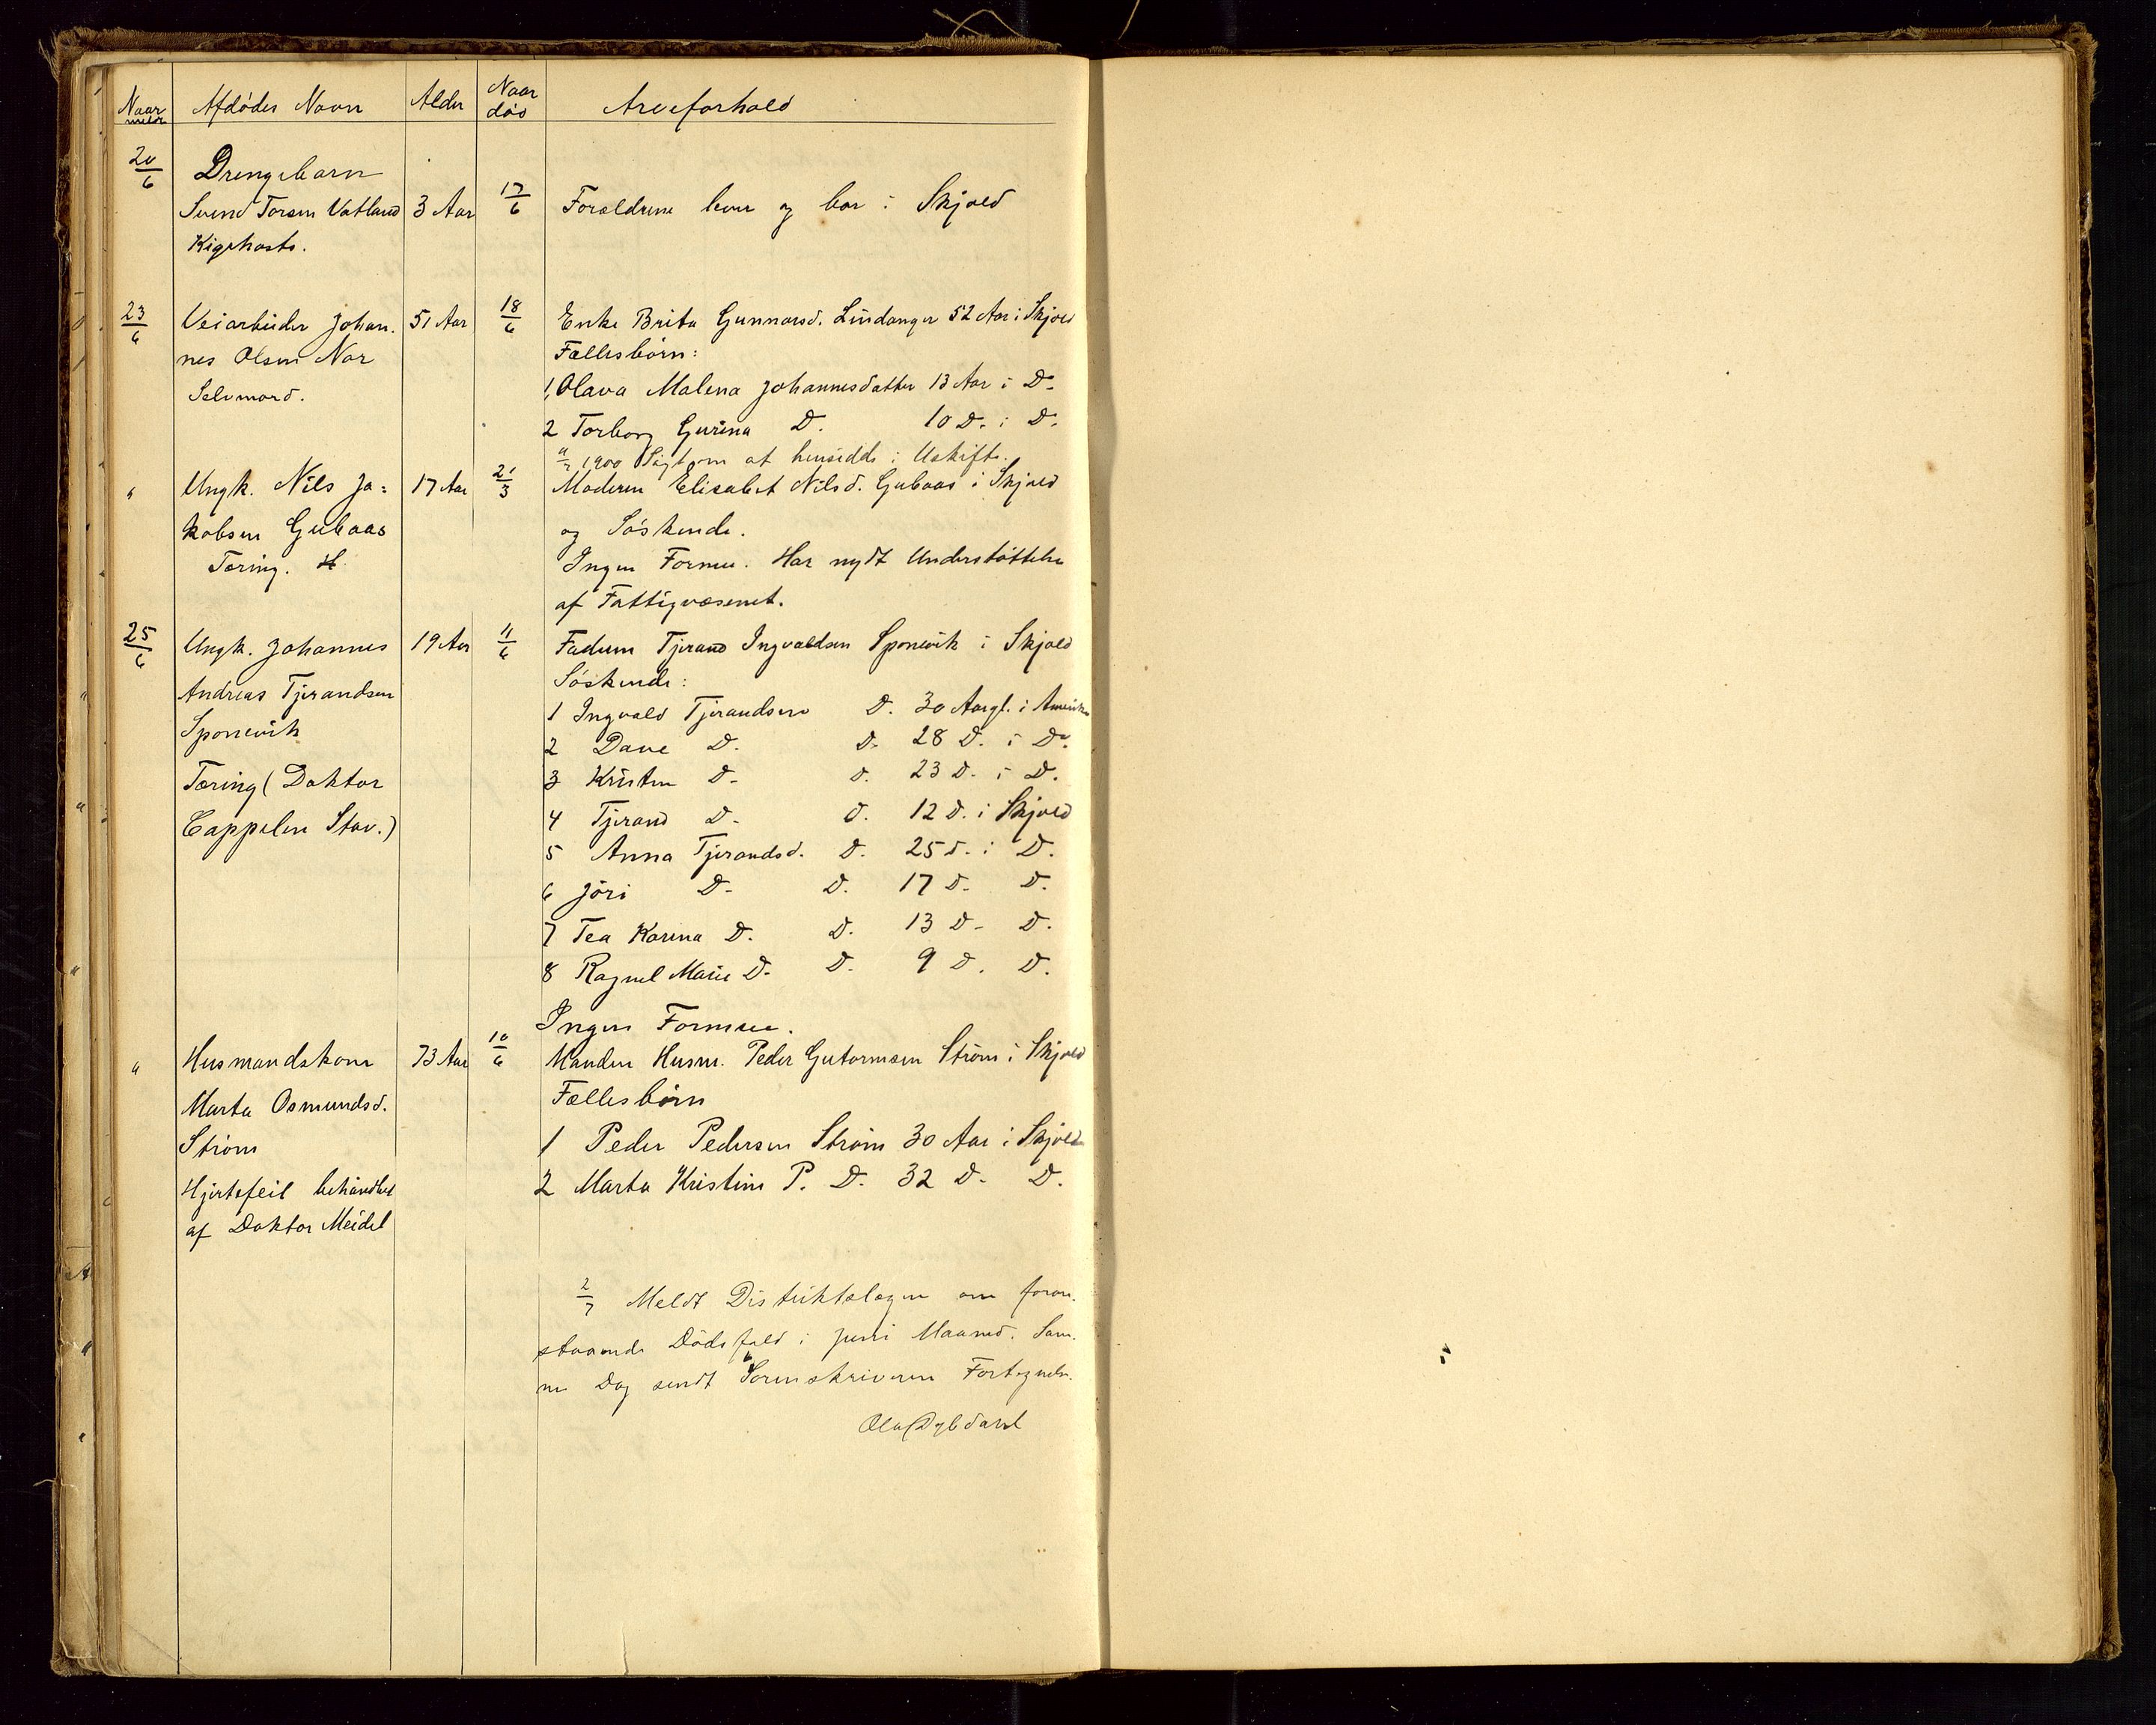 Naar meldt Afdødes Navn Alder Naar død Arveforhold
20/6 Drengebarn
Svend Torsen Vatland 3 Aar 17/6 Forældrene lever og bor i Skjold
Kighoste.
23/6 Veiarbeider Johan- 51 Aar 18/6 Enke Brita Gunnarsd. Lindanger 52 Aar i Skjold
nes Olsen Nor Fællesbörn:
Selvmord. 1, Olava Malena Johannesdatter 13 Aar i Do
2 Torborg Gurina D. 10 D. i D.
1900 Sögt om at hensidde i Uskifte.
" Ungk. Nils Ja- 17 Aar 21/3 Moderen Elisabet Nilsd. Gubaas i Skjold
kobsen Gubaas og Söskende.
Tæring. Ingen Formue. Har nydt Understöttelse
af Fattigvæsenet.
25/6 Ungk. Johannes 19 Aar 11/6 Faderen Tjerand Ingvaldsen Sponevik i Skjold
Andreas Tjerandsen Söskende:
Sponevik 1 Ingvald Tjerandsen D. 30 Aargl. i Amerika
2 Dave D. D. 28 D. i Do.
Tæring (Doktor 3 Kristen D. D. 23 D. i D.
Cappelen Stav.) 4 Tjerand D. D. 12 D. i Skjold
5 Anna Tjerandsd. D. 25 D. i D.
6 Jöri D. D. 17 D. D.
7 Tea Karina D. D. 13 D. D.
8 Ragnel Marie D. D. 9 D. D.
Ingen Formue.
" Husmandskone 73 Aar 10/6 Manden Husm. Peder Gutormsen Ström i Skjold
Marta Osmundsd. Fællesbörn
Ström 1 Peder Pedersen Ström 30 Aar i Skjold
Hjertefeil behandlet 2 Marta Kristine P. D. 32 D. D.
af Doktor Meidel
2/7 Meldt Distriktslægen om foran-
staaende Dödsfald i Juni Maaned. Sam-
me Dag sendt Sorenskriveren Fortegnelse.
Ola Dybdahl